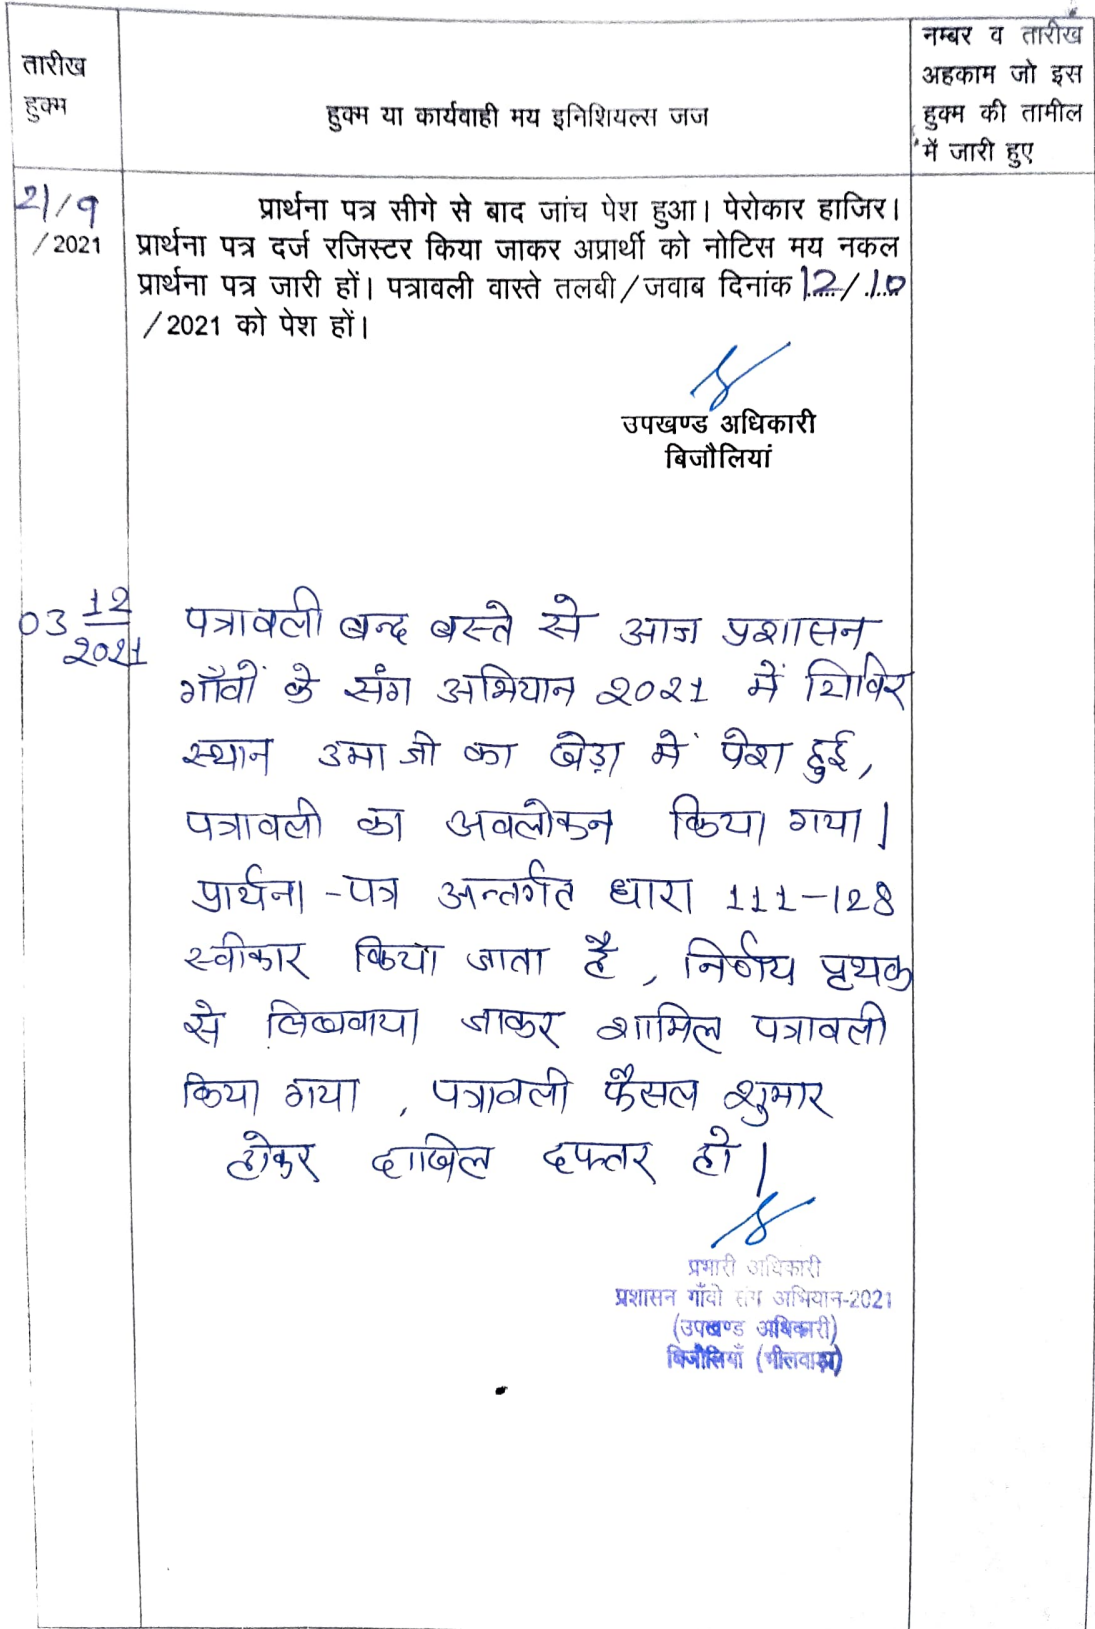 तारीख
हुक्म
हुक्म या कार्यवाही मय इनिशियल्स जज
नम्बर व तारीख
अहकाम जो इस
हुक्म की तामील
में जारी हुए
21/9
/2021
प्रार्थना पत्र सीगे से बाद जांच पेश हुआ। पेरोकार हाजिर।
प्रार्थना पत्र दर्ज रजिस्टर किया जाकर अप्रार्थी को नोटिस मय नकल
प्रार्थना पत्र जारी हों। पत्रावली वास्ते तलबी/जवाब दिनांक 12/10
/2021 को पेश हों।
उपखण्ड अधिकारी
बिजौलियां
03 12
2021
पत्रावली बन्द बस्ते से आज प्रशासन
गाँवों के संग अभियान 2021 में शिविर
स्थान उमा जी का खेड़ा में पेश हुई,
पत्रावली का अवलोकन किया गया।
प्रार्थना-पत्र अन्तर्गत धारा 111-128
स्वीकार किया जाता है, निर्णय पृथक
से लिखवाया जाकर शामिल पत्रावली
किया गया, पत्रावली फैसल शुमार
होकर दाखिल दफ्तर हो।
प्रभारी अधिकारी
प्रशासन गाँवो संग अभियान-2021
(उपखण्ड अधिकारी)
बिजौलियाँ (भीलवाड़ा)